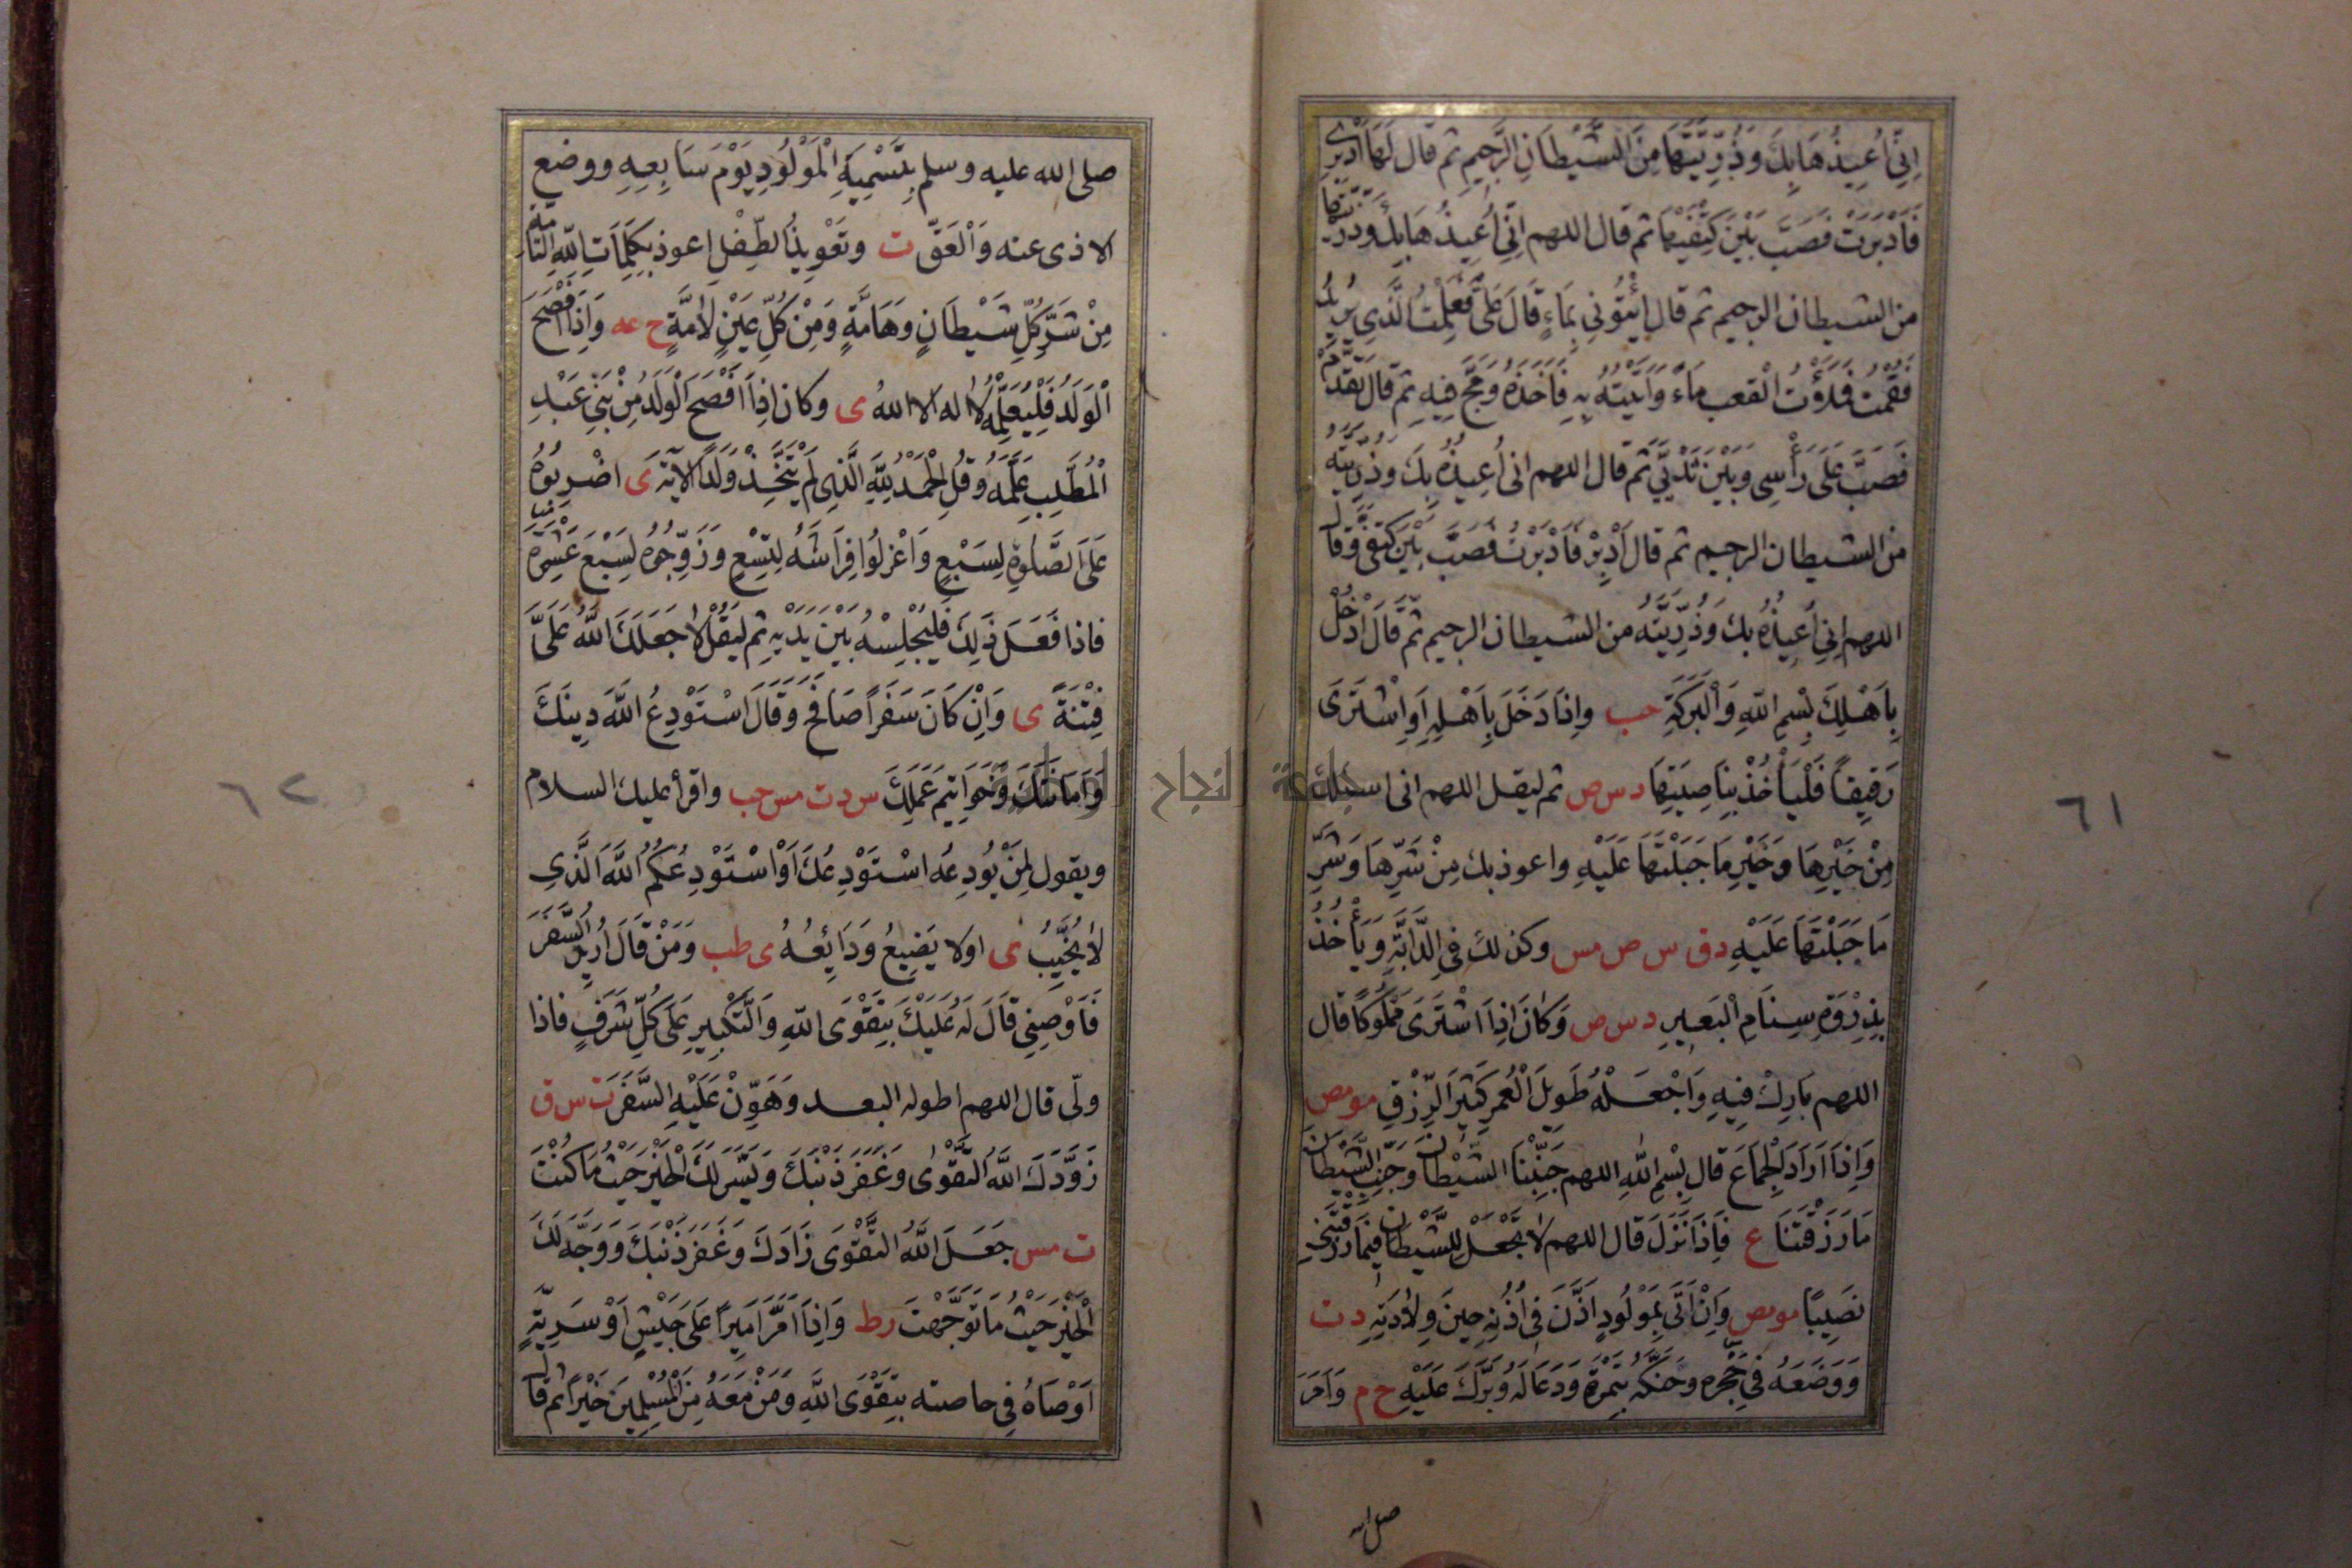 اِنِّي اُعِيذُهَا بِكَ وَذُرِّيَّتَهَا مِنَ الشَّيْطَانِ الرَّجِيمِ ثم قال لَهَا اَدْبِرِي
فَاَدْبَرَتْ فَصَبَّ بَيْنَ كَتِفَيْهَا ثم قال اللهم اِنِّي اُعِيذُهَا بِكَ وَذُرِّيَّتَهَا
من الشيطان الرجيم ثم قال اِيْتُونِي بِمَاءٍ قَالَ عَلِيٌّ فَعَلِمْتُ الَّذِي يُرِيدُ
فَقُمْتُ فَمَلَأْتُ الْقَعْبَ مَاءً وَاَتَيْتُهُ بِهِ فَاَخَذَهُ وَمَجَّ فِيهِ ثم قال تَقَدَّمْ
فَصَبَّ عَلَى رَأْسِي وَبَيْنَ ثَدْيَيَّ ثم قال اللهم اني اُعِيذُهُ بِكَ وَذُرِّيَّتَهُ
من الشيطان الرجيم ثم قال اَدْبِرْ فَاَدْبَرْتُ فَصَبَّ بَيْنَ كَتِفَيَّ وَقَالَ
اللهم اِنِّي اُعِيذُهُ بِكَ وَذُرِّيَّتَهُ من الشيطان الرجيم ثم قَالَ ادْخُلْ
بِاَهْلِكَ بِسْمِ اللّٰهِ وَالْبَرَكَةِ حب وَاِذَا دَخَلَ بِاَهْلِهِ اَوِ اشْتَرَى
رَقِيقًا فَلْيَأْخُذْ بِنَاصِيَتِهَا د س ص ثم ليقل اللهم اني اسئلك
مِنْ خَيْرِهَا وَخَيْرِ مَا جَبَلْتَهَا عَلَيْهِ واعوذ بك مِنْ شَرِّهَا وَشَرِّ
مَا جَبَلْتَهَا عَلَيْهِ د ق س ص مس وكذلك فِي الدَّابَّةِ وَيَأْخُذُ
بِذِرْوَةِ سِنَامِ الْبَعِيرِ د س ص وَكَانَ اِذَا اشْتَرَى مَمْلُوكًا قال
اللهم بَارِكْ فِيهِ وَاجْعَلْهُ طَوِيلَ الْعُمُرِ كَثِيرَ الرِّزْقِ مو مص
وَاِذَا اَرَادَ الْجِمَاعَ قال بِسْمِ اللّٰهِ اللهم جَنِّبْنَا الشَّيْطَانَ وَجَنِّبِ الشَّيْطَانَ
مَا رَزَقْتَنَا ع فَاِذَا نَزَلَ قال اللهم لَا تَجْعَلْ لِلشَّيْطَانِ فِيمَا رَزَقْتَنِي
نَصِيبًا مو مص وَاِنْ اَتَى بِمَوْلُودٍ اَذَّنَ فِي اُذُنِهِ حِينَ وِلَادَتِهِ د ت
وَوَضَعَهُ فِي حِجْرِهِ وَحَنَّكَهُ بِتَمْرَةٍ وَدَعَا لَهُ وَبَرَّكَ عَلَيْهِ خ م وَاَمَرَ
صلى الله
٦١
صلى الله عليه وسلم بِتَسْمِيَةِ الْمَوْلُودِ يَوْمَ سَابِعِهِ ووضع
الاذى عنه وَالْعَقِّ ت وتَعْوِيذُ الطِّفْلِ اعوذ بِكَلِمَاتِ اللّٰهِ التَّامَّةِ
مِنْ شَرِّ كُلِّ شَيْطَانٍ وَهَامَّةٍ وَمِنْ كُلِّ عَيْنٍ لَامَّةٍ خ عه وَاِذَا اَفْصَحَ
الْوَلَدُ فَلْيُعَلِّمْهُ لا اله الا اللهُ ى وكان اِذَا اَفْصَحَ الْوَلَدُ مِنْ بَنِي عَبْدِ
الْمُطَّلِبِ عَلَّمَهُ وَقُلِ الْحَمْدُ لِلّٰهِ الَّذِي لَمْ يَتَّخِذْ وَلَدًا الآيَةَ ى اضْرِبُوهُ
عَلَى الصَّلٰوةِ لِسَبْعٍ وَاعْزِلُوا فِرَاشَهُ لِتِسْعٍ وَزَوِّجُوهُ لِسَبْعَ عَشْرَةَ
فاذا فَعَلَ ذَلِكَ فَلْيُجْلِسْهُ بَيْنَ يَدَيْهِ ثم لْيَقُلْ لَا جَعَلَكَ اللّٰهُ عَلَيَّ
فِتْنَةً ى وَاِنْ كَانَ سَفَرًا صَافَحَ وَقَالَ اسْتَوْدِعُ اللّٰهَ دِينَكَ
وَاَمَانَتَكَ وَخَوَاتِيمَ عَمَلِكَ س د ت مس حب واقرأ عليك السلام
ويقول لِمَنْ يُودِعُه اسْتَوْدِعُكَ اَوْ اسْتَوْدِعُكُمُ اللّٰهَ الَّذِي
لَا يُخَيِّبُ ى اولا يَضِيعُ وَدَائِعُهُ ى طب وَمَنْ قَالَ اُرِيدُ السَّفَرَ
فَاَوْصِنِي قَالَ لَهُ عَلَيْكَ بِتَقْوَى اللّٰهِ وَالتَّكْبِيرِ عَلَى كُلِّ شَرَفٍ فاذا
ولّى قال اللهم اطو له البعد وَهَوِّنْ عَلَيْهِ السَّفَرَ ت س ق
زَوَّدَكَ اللّٰهُ التَّقْوٰى وَغَفَرَ ذَنْبَكَ وَيَسَّرَ لَكَ الْخَيْرَ حَيْثُ مَا كُنْتَ
ت مس جَعَلَ اللّٰهُ التَّقْوَى زَادَكَ وَغَفَرَ ذَنْبَكَ وَوَجَّهَ لَكَ
الْخَيْرَ حَيْثُ مَا تَوَجَّهْتَ ر ط وَاِذَا اَمَّرَ اَمِيرًا عَلَى جَيْشٍ اَوْ سَرِيَّةٍ
اَوْصَاهُ فِي خاصته بِتَقْوَى اللّٰهِ وَمَنْ مَعَهُ مِنَ الْمُسْلِمِينَ خَيْرًا ثم قال
٦٢
جامعة النجاح الوطنية